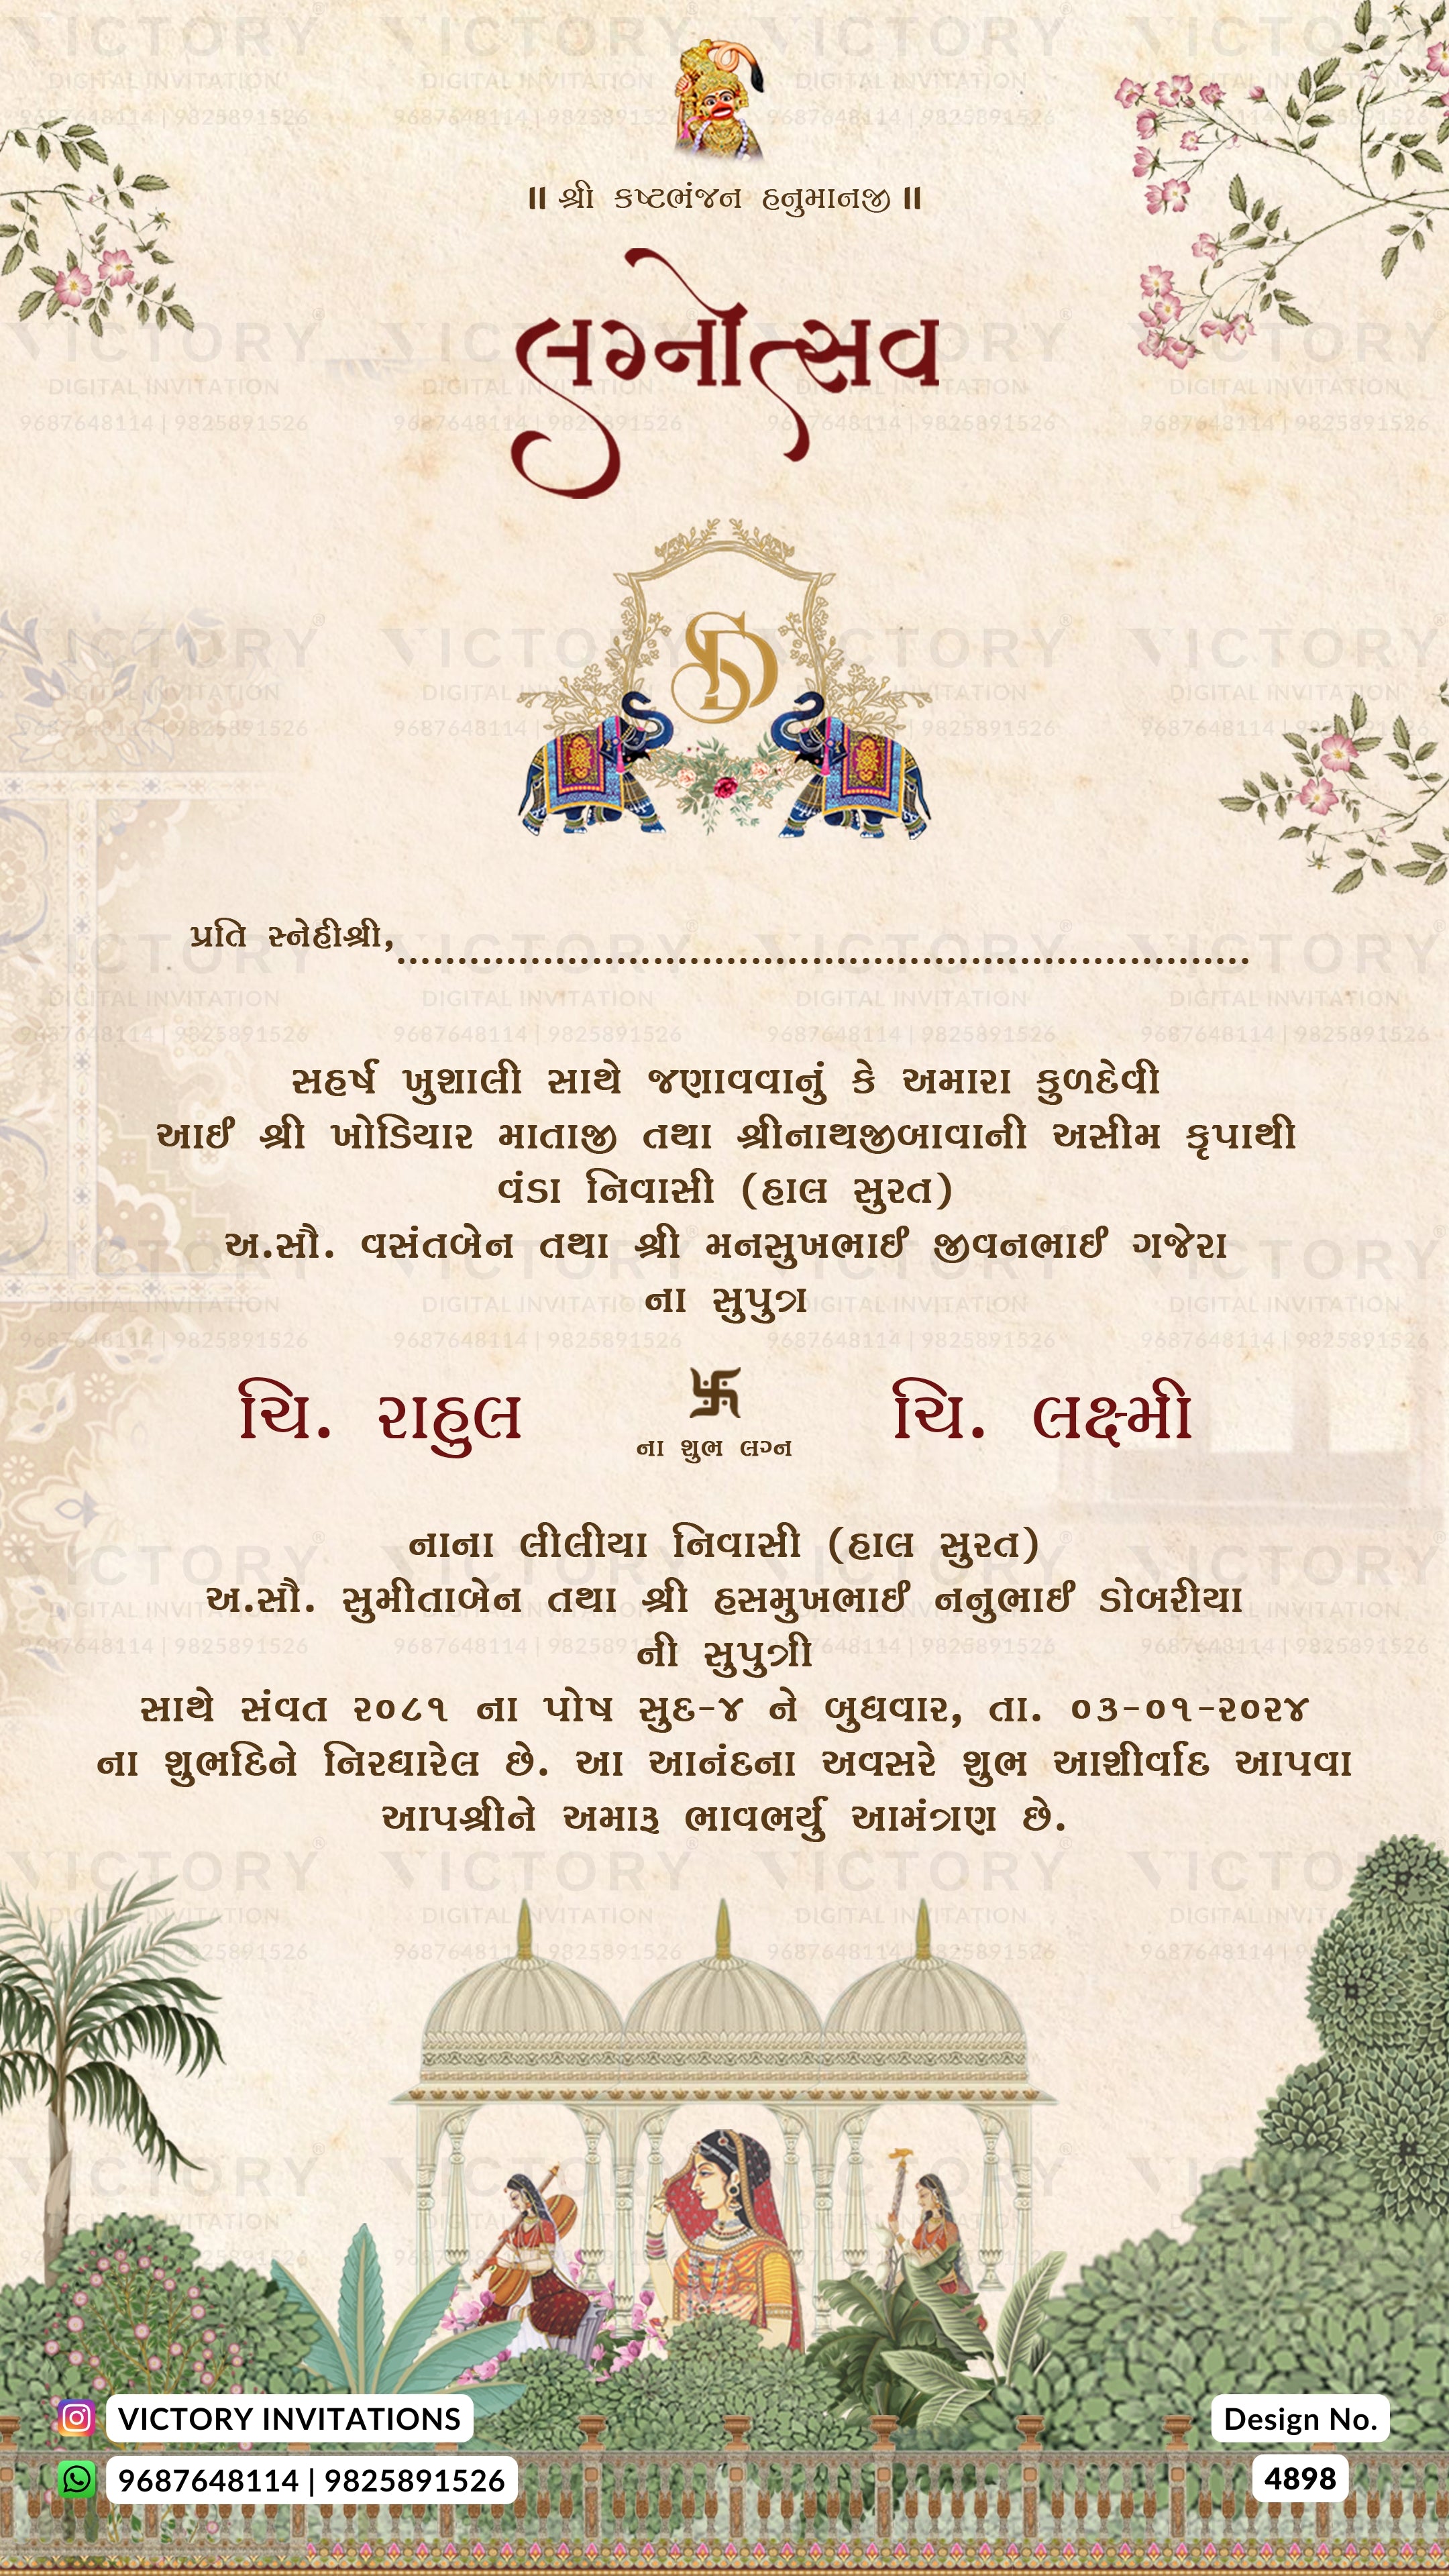 ॥ શ્રી કષ્ટભંજન હનુમાનજી ॥
લગ્નોત્સવ
SD
પ્રતિ સ્નેહીશ્રી,......................................................................
સહર્ષ ખુશાલી સાથે જણાવવાનું કે અમારા કુળદેવી
આઈ શ્રી ખોડિયાર માતાજી તથા શ્રીનાથજીબાવાની અસીમ કૃપાથી
વંડા નિવાસી (હાલ સુરત)
અ.સૌ. વસંતબેન તથા શ્રી મનસુખભાઈ જીવનભાઈ ગજેરા
ના સુપુત્ર
ચિ. રાહુલ
卐
ના શુભ લગ્ન
ચિ. લક્ષ્મી
નાના લીલીયા નિવાસી (હાલ સુરત)
અ.સૌ. સુમીતાબેન તથા શ્રી હસમુખભાઈ નનુભાઈ ડોબરીયા
ની સુપુત્રી
સાથે સંવત ૨૦૮૧ ના પોષ સુદ-૪ ને બુધવાર, તા. ૦૩-૦૧-૨૦૨૪
ના શુભદિને નિરધારેલ છે. આ આનંદના અવસરે શુભ આશીર્વાદ આપવા
આપશ્રીને અમારૂ ભાવભર્યુ આમંત્રણ છે.
VICTORY INVITATIONS
9687648114 | 9825891526
Design No.
4898
VICTORY
DIGITAL INVITATION
9687648114 | 9825891526